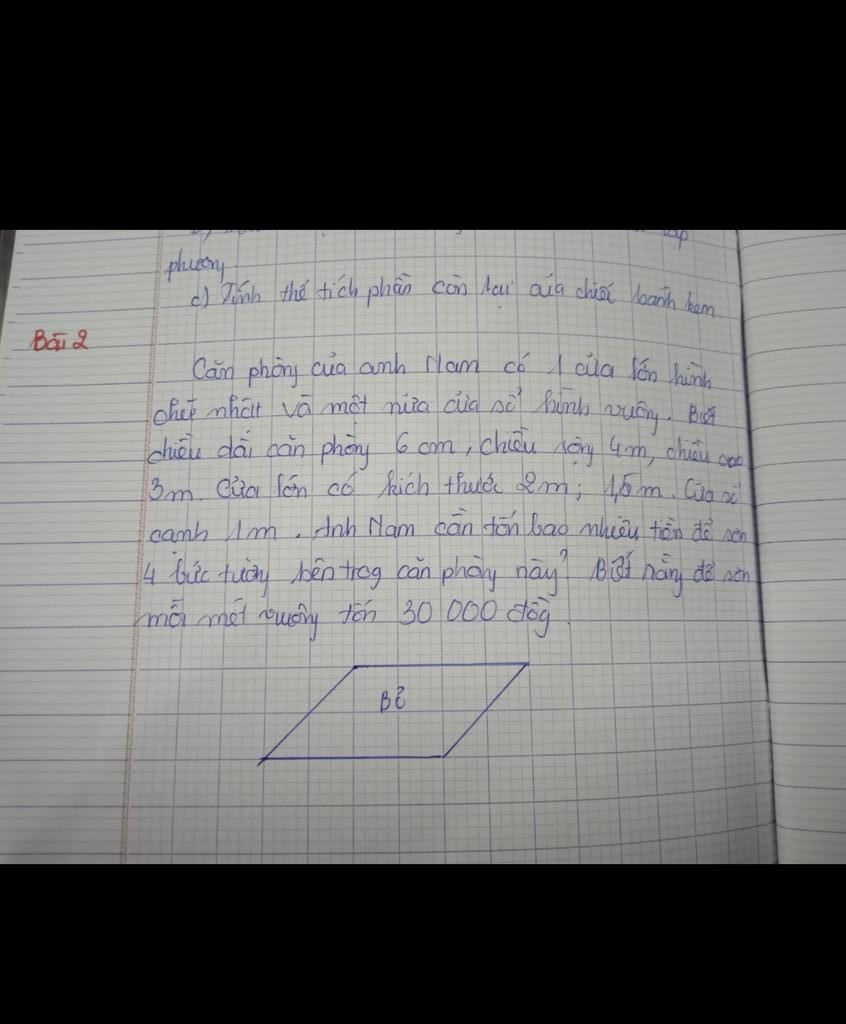 phương
c) Tính thể tích phần còn lại của chiếc bánh kem
Bài 2
Căn phòng của anh Nam có 1 cửa lớn hình
chữ nhất và một nửa cửa sổ hình vuông. Biết
chiều dài căn phòng 6 cm, chiều rộng 4m, chiều cao
3m. Cửa lớn có kích thước 2m; 1,5m. Cửa sổ
cạnh 1m. Anh Nam cần tốn bao nhiêu tiền để sơn
4 bức tường bên trog căn phòng này? Biết rằng để sơn
mỗi mét vuông tốn 30 000 đồg.